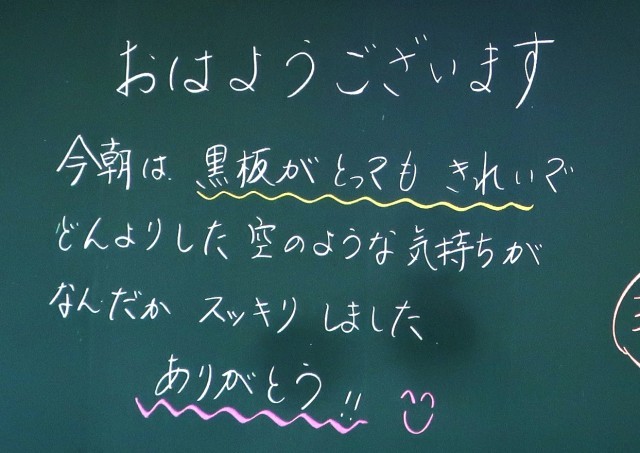 おはようございます
今朝は 黒板が とっても きれいで
どんよりした 空のような 気持ちが
なんだか スッキリ しました
ありがとう!!